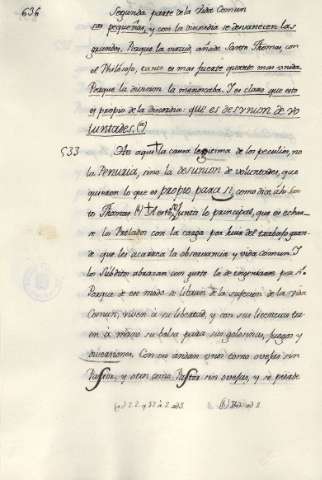 636
Segunda parte de la Vida Comun
las pequeñas, y con la discordia se desvanecen las
grandes. Porque la virtud, añade Santo Thomas, con
el Philosofo, tanto es mas fuerte quanto mas unida.
Porque la division la
es propio de la discordia: que es desunion de vo
luntades. (a)
533 He aqui la causa legitima de los peculios, no
la Penuria, sino la desunion de voluntades, que
quieren lo que es propio para si, como dixo
to Thomas (b) Junta lo principal, que es echar
los Prelados con la carga por huir del trabajo gran
de que les acarrea la observancia y vida comun. I
los Subditos abrazan con gusto lo de
Porque de ese modo se libran de la sujecion de la vida
Comun; viven à su libertad, y con sus licencias tie
en à mano su bolsa para sus golosinas, juegos y
Con eso andan unos como ovejas sin
Pastor, y otros como Pastor sin ovejas, y se pierde